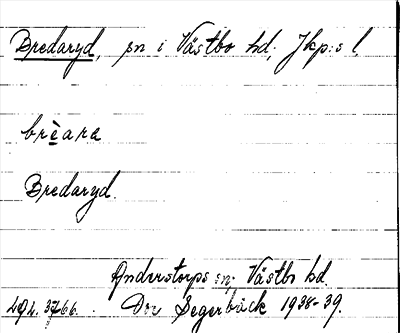 Bredaryd, sn i Västbo hd, Jkp:s l.
brèara
Bredaryd.
Anderstorps sn, Västbo hd.
Segerbäck 1938-39.